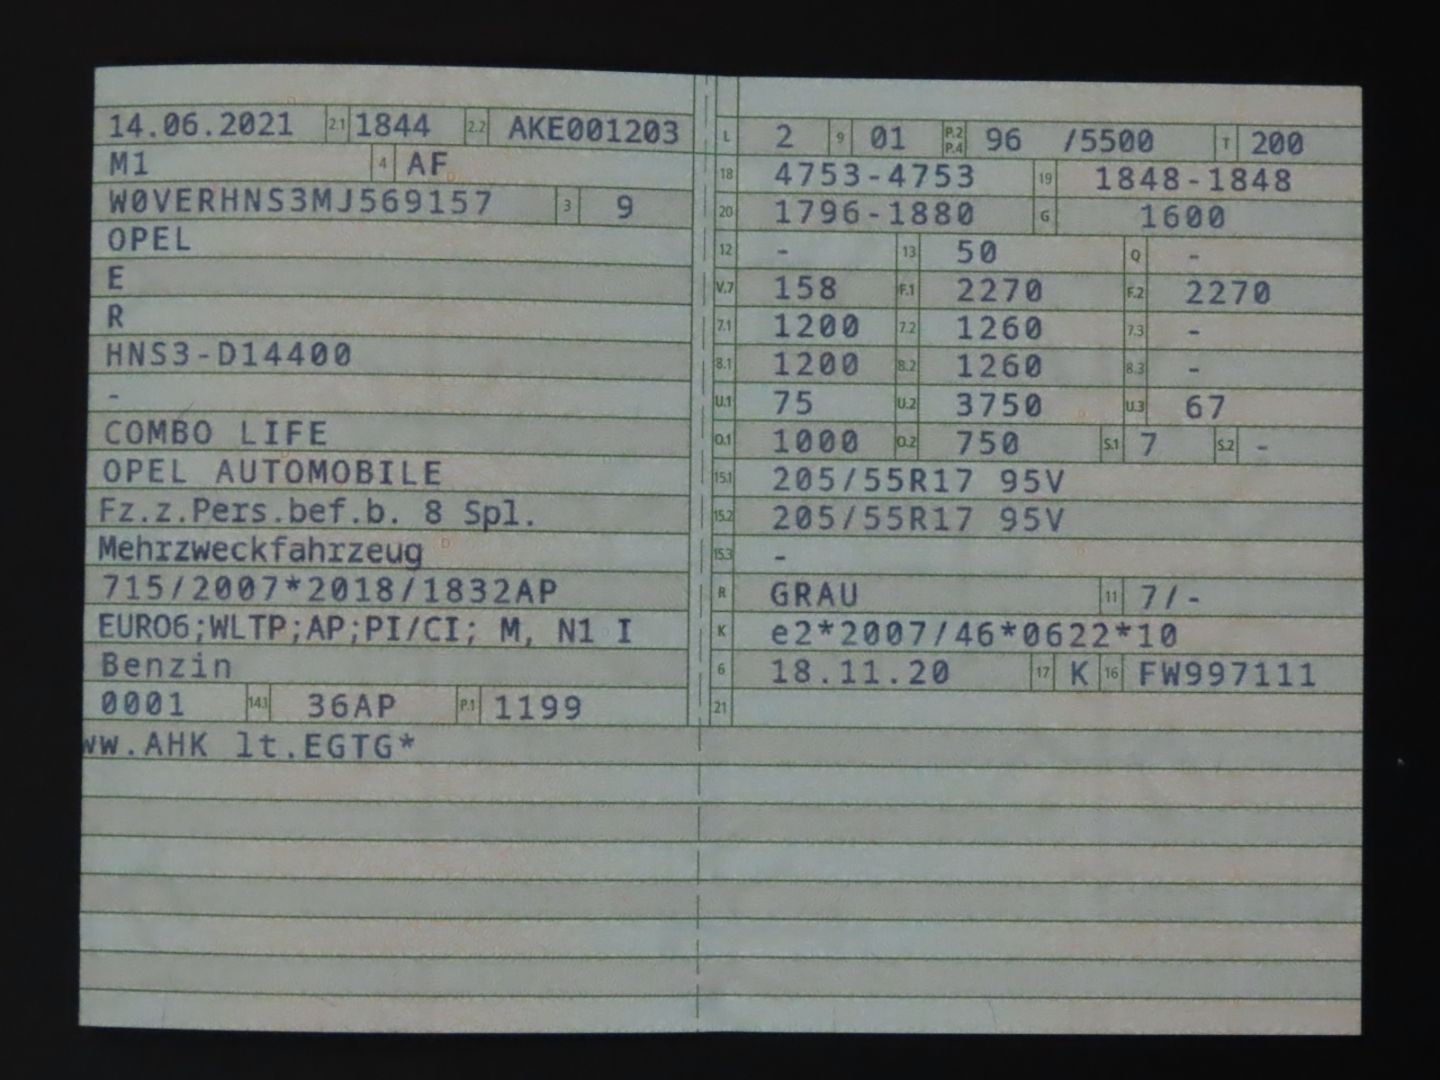 14.06.2021 2.1 1844 2.2 AKE001203
M1 4 AF
W0VERHNS3MJ569157 3 9
OPEL
E
R
HNS3-D14400
-
COMBO LIFE
OPEL AUTOMOBILE
Fz.z.Pers.bef.b. 8 Spl.
Mehrzweckfahrzeug
715/2007*2018/1832AP
EURO6;WLTP;AP;PI/CI; M, N1 I
Benzin
0001 14.1 36AP P.1 1199
ww.AHK lt.EGTG*
L 2 9 01 P.2 P.4 96 /5500 T 200
18 4753-4753 19 1848-1848
20 1796-1880 G 1600
12 - 13 50 Q -
V.7 158 F.1 2270 F.2 2270
7.1 1200 7.2 1260 7.3 -
8.1 1200 8.2 1260 8.3 -
U.1 75 U.2 3750 U.3 67
O.1 1000 O.2 750 S.1 7 S.2 -
15.1 205/55R17 95V
15.2 205/55R17 95V
15.3 -
R GRAU 11 7/-
K e2*2007/46*0622*10
6 18.11.20 17 K 16 FW997111
21